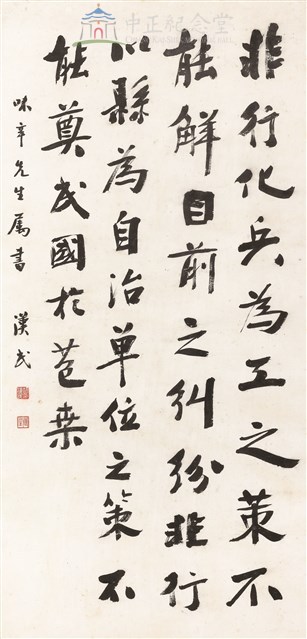 中正紀念堂
非行化兵為工之策不
能解目前之糾紛非行
以縣為自治單位之策不
能奠民國於苞桑
味辛先生屬書 漢民